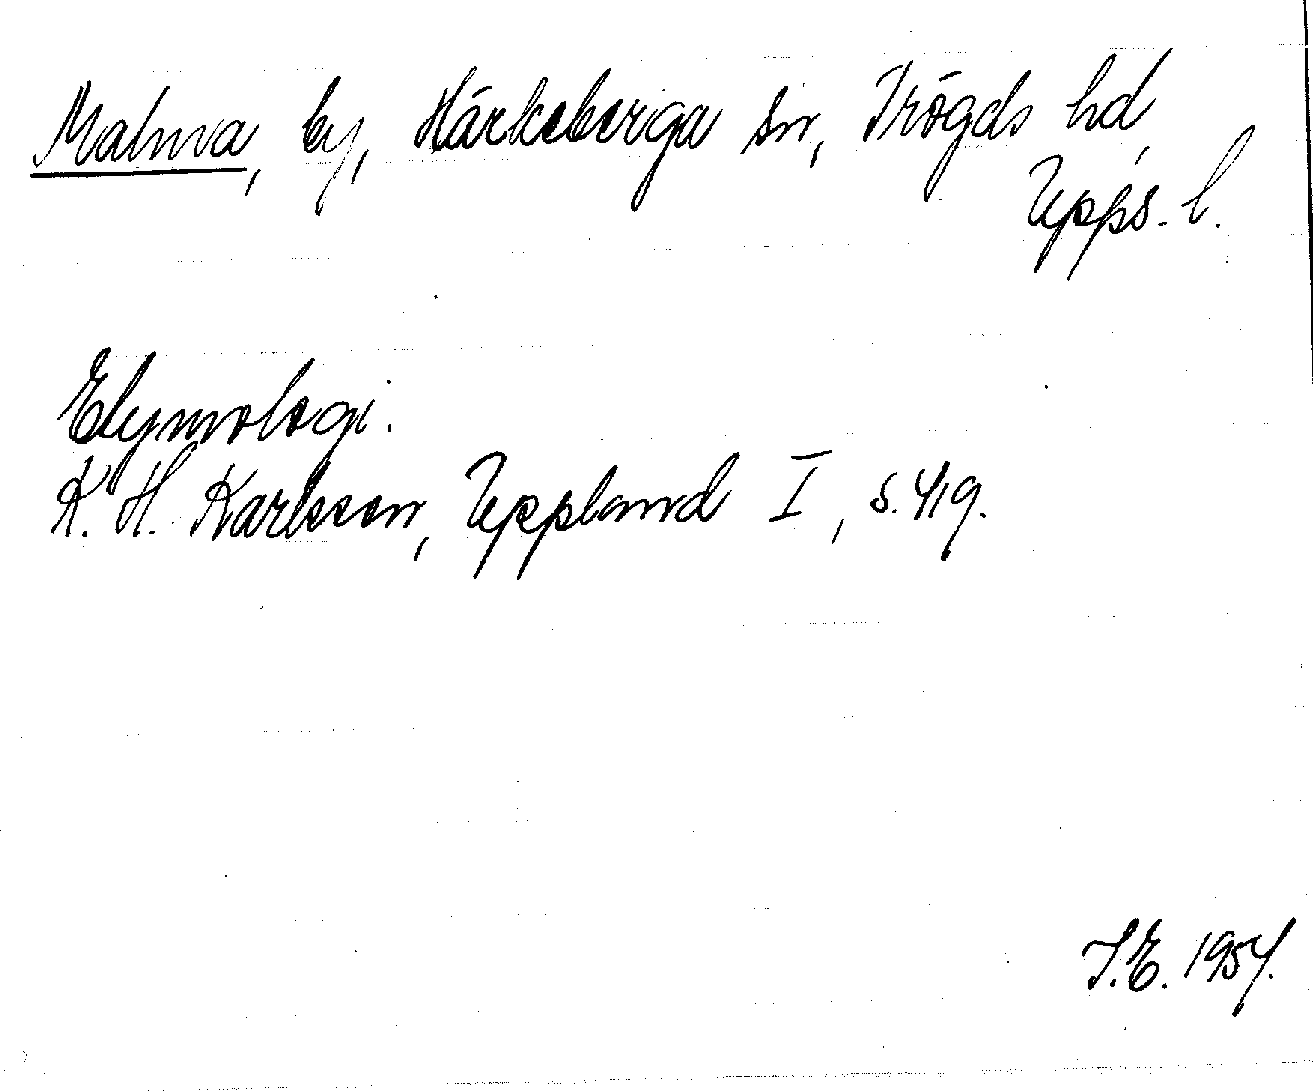 Malma, by, Härkeberga sn, Trögds hd,
Upps. l.
Etymologi.
K. H. Karlsson, Uppland I, s. 419.
I.E. 1954.